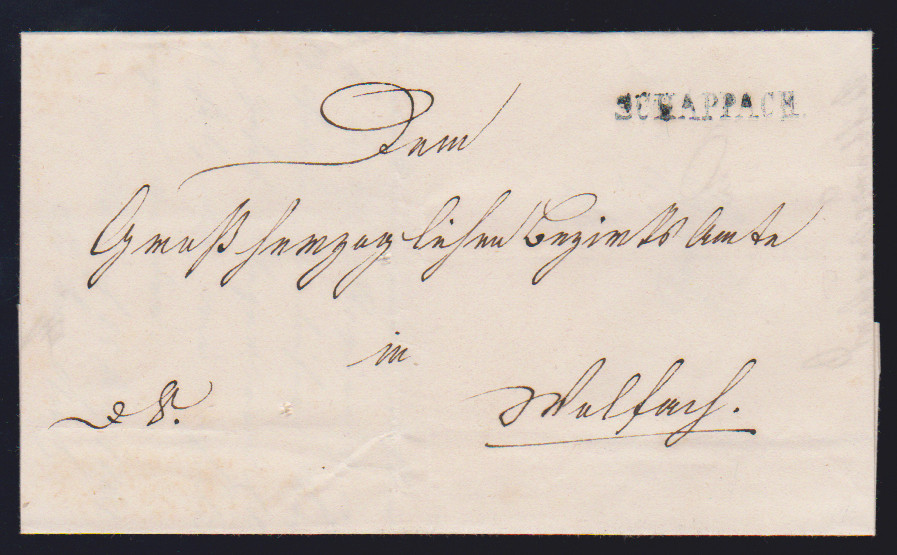 SCHAPPACH.
Dem
Großherzoglichen Bezirks Amte
in
Wolfach.